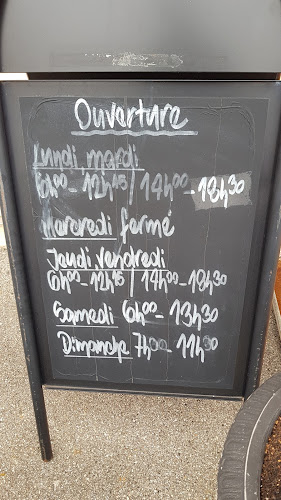 Ouverture
Lundi mardi
6h00 - 12h45 / 14h00 - 18h30
Mercredi fermé
Jeudi vendredi
6h00 - 12h45 / 14h00 - 18h30
Samedi 6h00 - 13h30
Dimanche 7h00 - 11h30